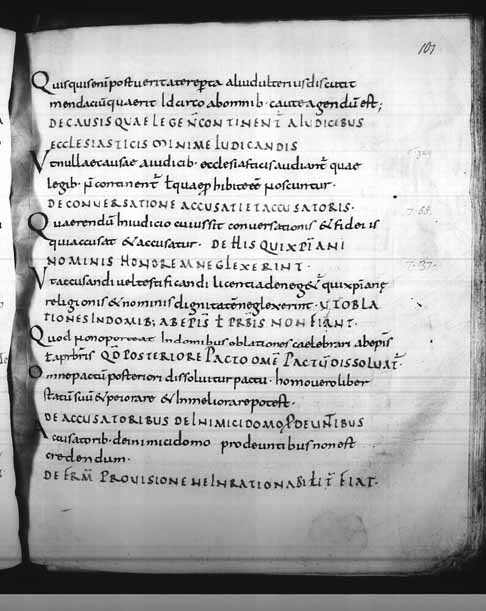 107
Quisquis enī post veritate repta aliud ulterius discutit
mendaciū quaerit Idcirco ab omnib. caute agendū est;
DE CAUSIS QUAE LEGE N̄ CONTINENT̄ A IUDICIBUS
ECCLESIASTICIS MINIME IUDICANDIS
Ut nullae causae a iudicib. ecclesiasticis audiant̄ quae
legib. n̄ continent̄ ł quae phibite eē noscuntur.
DE CONVERSATIONE ACCUSATI ET ACCUSATORIS.
Quaerendū In iudicio cuius sit conversationis & fidei is
qui accusat & accusatur. DE HIS QUI XPIANI
NOMINIS HONOREM NEGLEXERINT.
Ut accusandi vel testificandi licentia deneget̄ qui xpianę
religionis & nominis dignitatē neglexerint. UT OBLA
TIONES IN DOMIB; AB EPĪS ł PRBĪS NON FIANT.
Quod non oporteat In domibus oblationes caelebrari ab epīs
ł a prbrīs QD̄ POSTERIORE PACTO OMĒ PACTŪ DISSOLVAT̄.
Omne pactū posteriori dissolvitur pactu. homo vero liber
statū suū & peiorare & In meliorare potest.
DE ACCUSATORIBUS DE INIMICI DOMO PDEUNTIBUS
Accusatorib. de inimici domo prodeuntibus non est
credendum.
DE FRM̄ PROVISIONE NE INRATIONABILIT̄ FIAT.